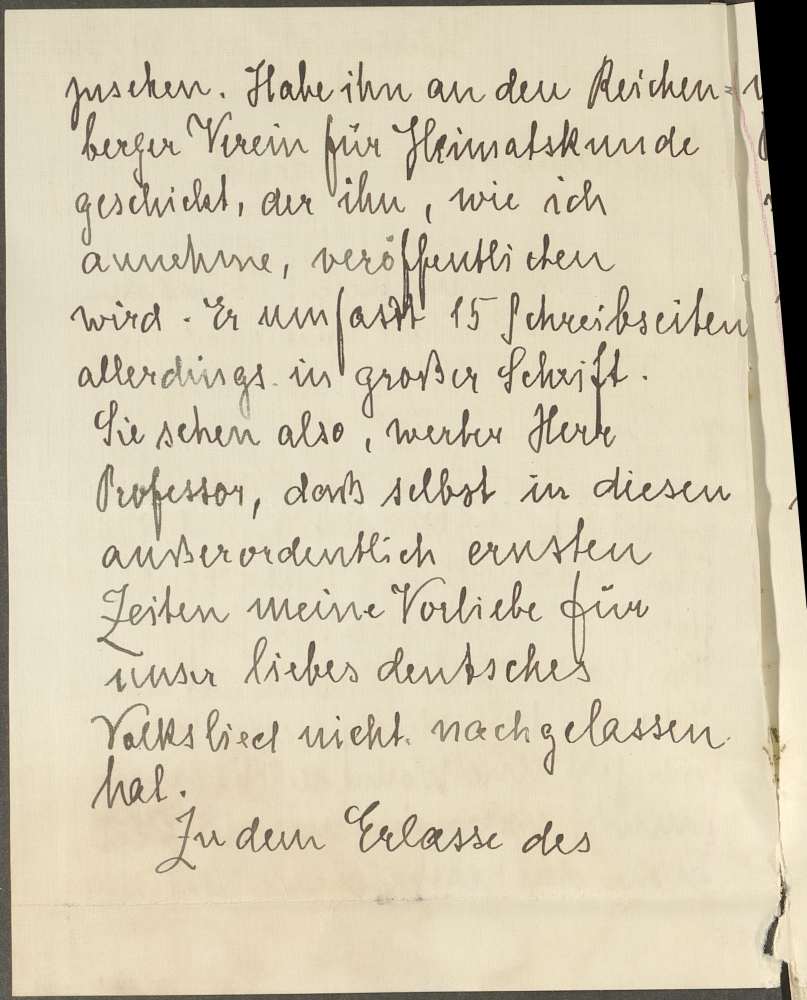 zusehen. Habe ihn an den Reichen=
berger Verein für Heimatskunde
geschickt, der ihn, wie ich
annehme, veröffentlichen
wird. Er umfasst 15 Schreibseiten
allerdings in großer Schrift.
Sie sehen also, werter Herr
Professor, daß selbst in diesen
außerordentlich ernsten
Zeiten meine Vorliebe für
unser liebes deutsches
Volkslied nicht nachgelassen
hat.
Zu dem Erlasse des